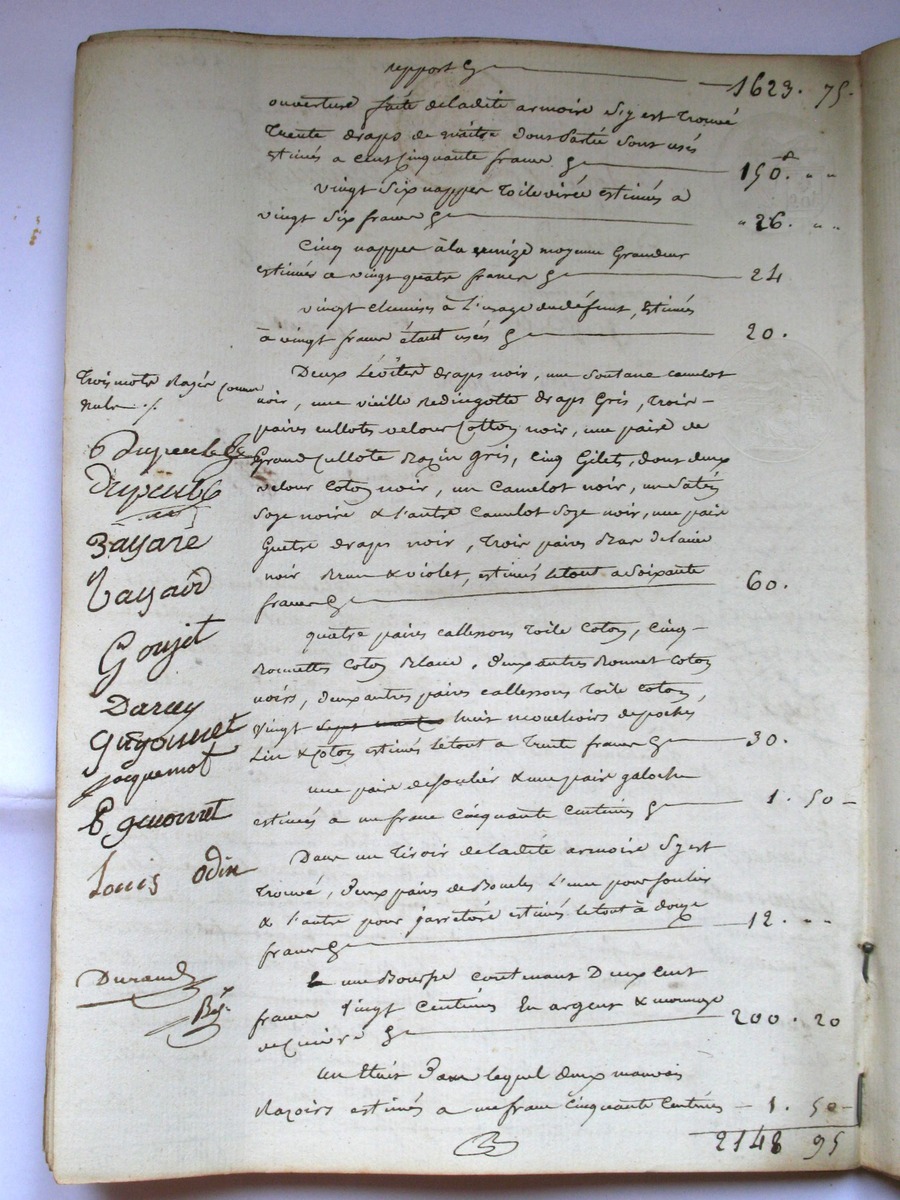 report 1623. 75.
ouverture faite de ladite armoire S'y est trouvé
trente draps de maître dont partie sont usés
estimés a cent cinquante francs 150f. " "
vingt six nappes toile virée estimés a
vingt six francs " 26. " "
Cinq nappes à la moyenne Grandeur
estimés a vingt quatre francs 24
vingt chemises à L'usage du défunt, Estimés
à vingt francs étant usés 20.
Deux Lévites draps noir, une Soutane camelot
noir, une vieille Redingotte draps Gris, trois
paires cullotes velour Cotton noir, une paire de
Grand Cullote Bazin gris, cinq Gilets, dont deux
velour Coton noir, un Camelot noir, un Satin
Soye noire & l'autre Camelot Soye noir, une pair
Guetre draps noir, trois paires Bas de laine
noir Brun & violet, estimés le tout a Soixante
francs 60.
quatre paires callessons toile Coton, Cinq
Bonnettes Coton Blanc, deux autres Bonnet Coton
noirs, deux autres paires callessons toile Coton,
vingt huit mouchoirs de poches
Lin & Coton estimés le tout a trente francs 30.
une paire de soulier & une pair galoche
estimés à un franc Cinquante Centimes 1. 50
Dans un tiroir de ladite armoire S'y est
trouvé, Deux paires de Boucles L'une pour soulier
& l'autre pour jarretiere estimés le tout à douze
francs 12. " "
une Bourse contenant Deux Cent
francs vingt Centimes En argent & monnoye
de Cuivre 200. 20
un Etuit Dans lequel deux mauvais
Razoirs estimés a un franc Cinquante Centimes 1. 50
2148 95
trois mots Rayés comme
nuls
Bayard
Goujet
Darcey
Guyonnet
Jacquemot
Louis Odin
Durand